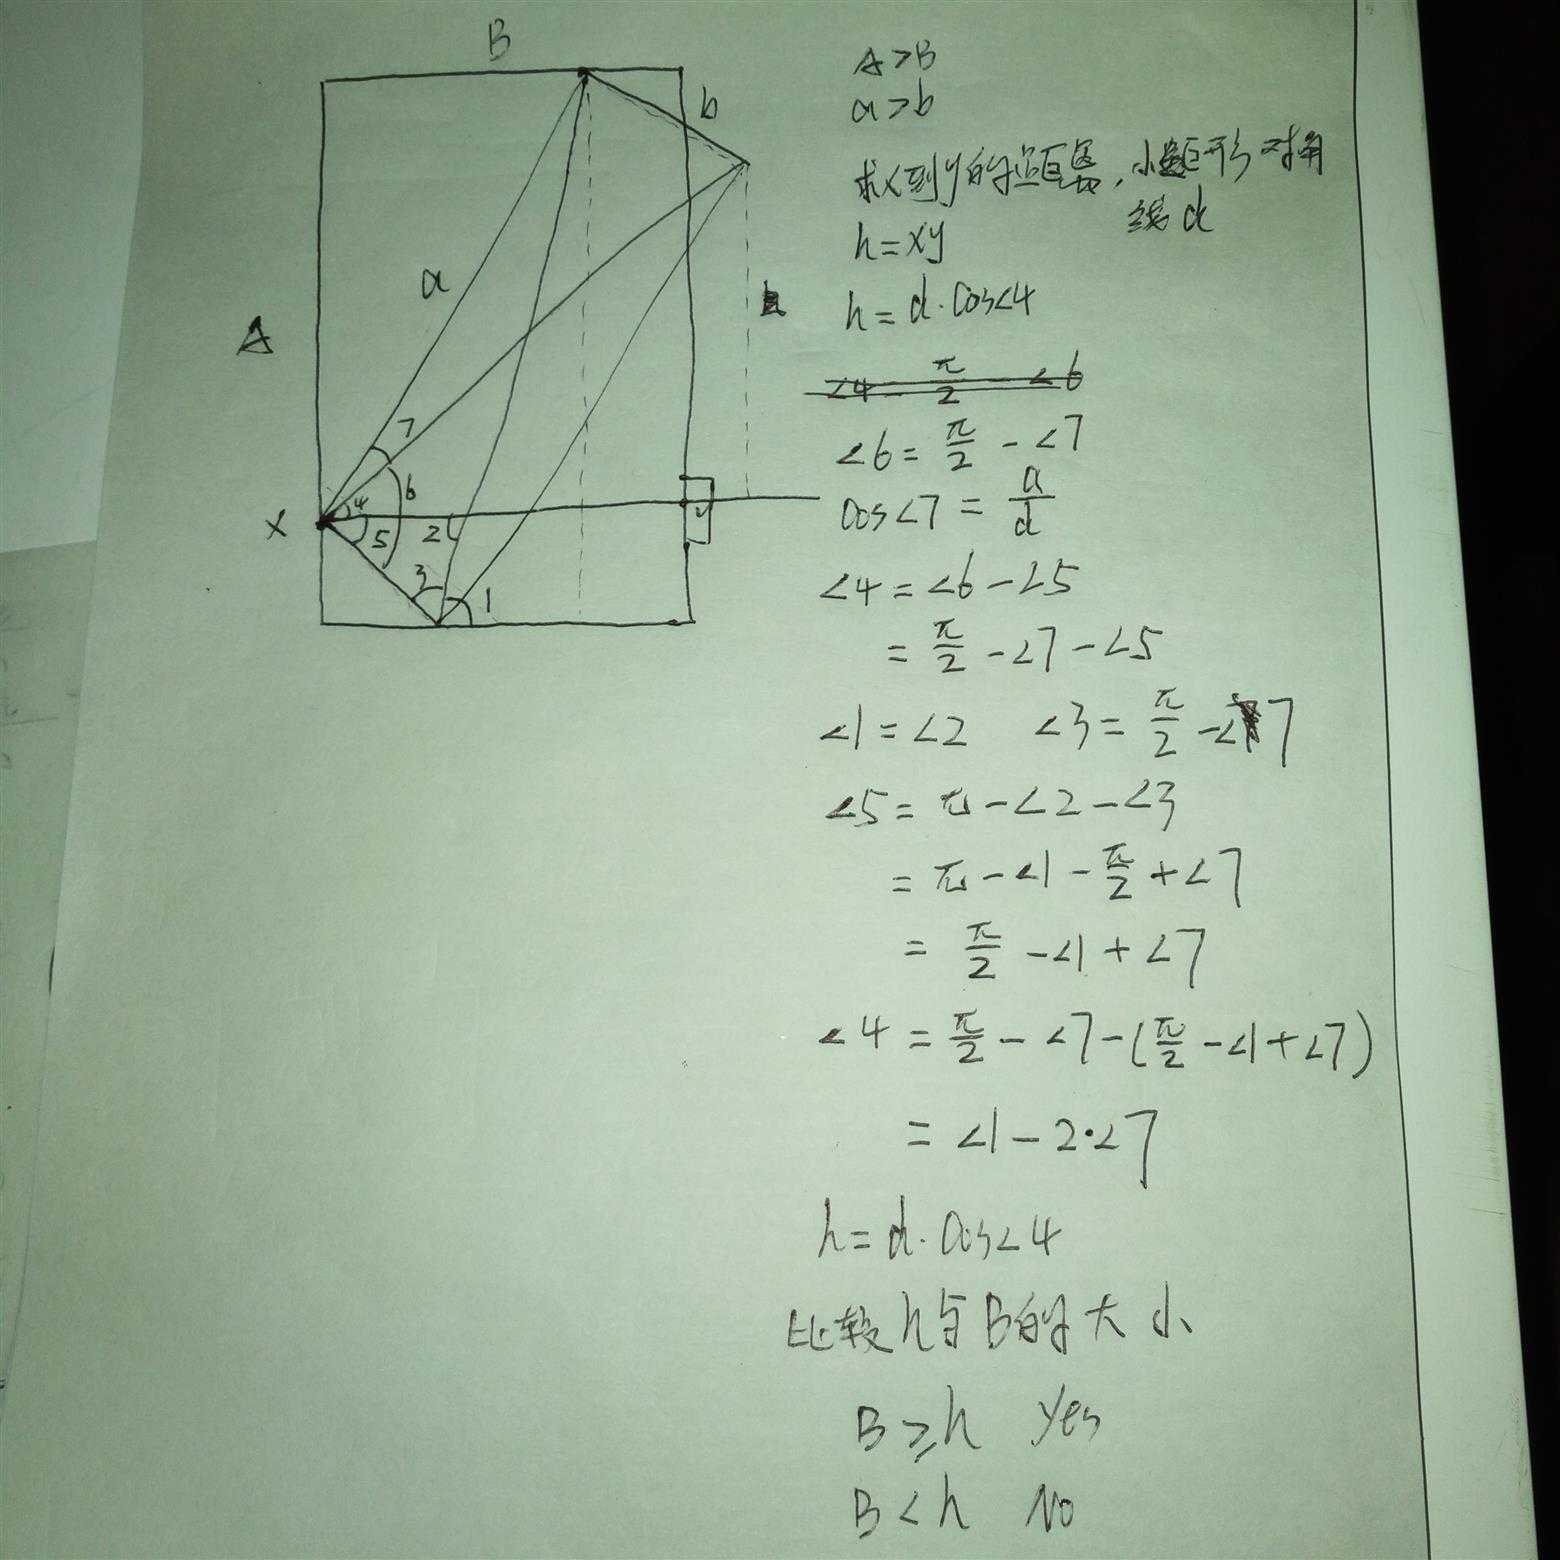 B
b
a
A
7
6
4
X
5
2
3
1
A>B
a>b
求X到y的距离,小矩形对角
线d
h=xy
h=d·cos∠4
∠4 π/2 ∠6
∠6=π/2-∠7
cos∠7=a/d
∠4=∠6-∠5
=π/2-∠7-∠5
∠1=∠2 ∠3=π/2-∠7
∠5=π-∠2-∠3
=π-∠1-π/2+∠7
=π/2-∠1+∠7
∠4=π/2-∠7-(π/2-∠1+∠7)
=∠1-2·∠7
h=d·cos∠4
比较h与B的大小
B≥h Yes
B<h No